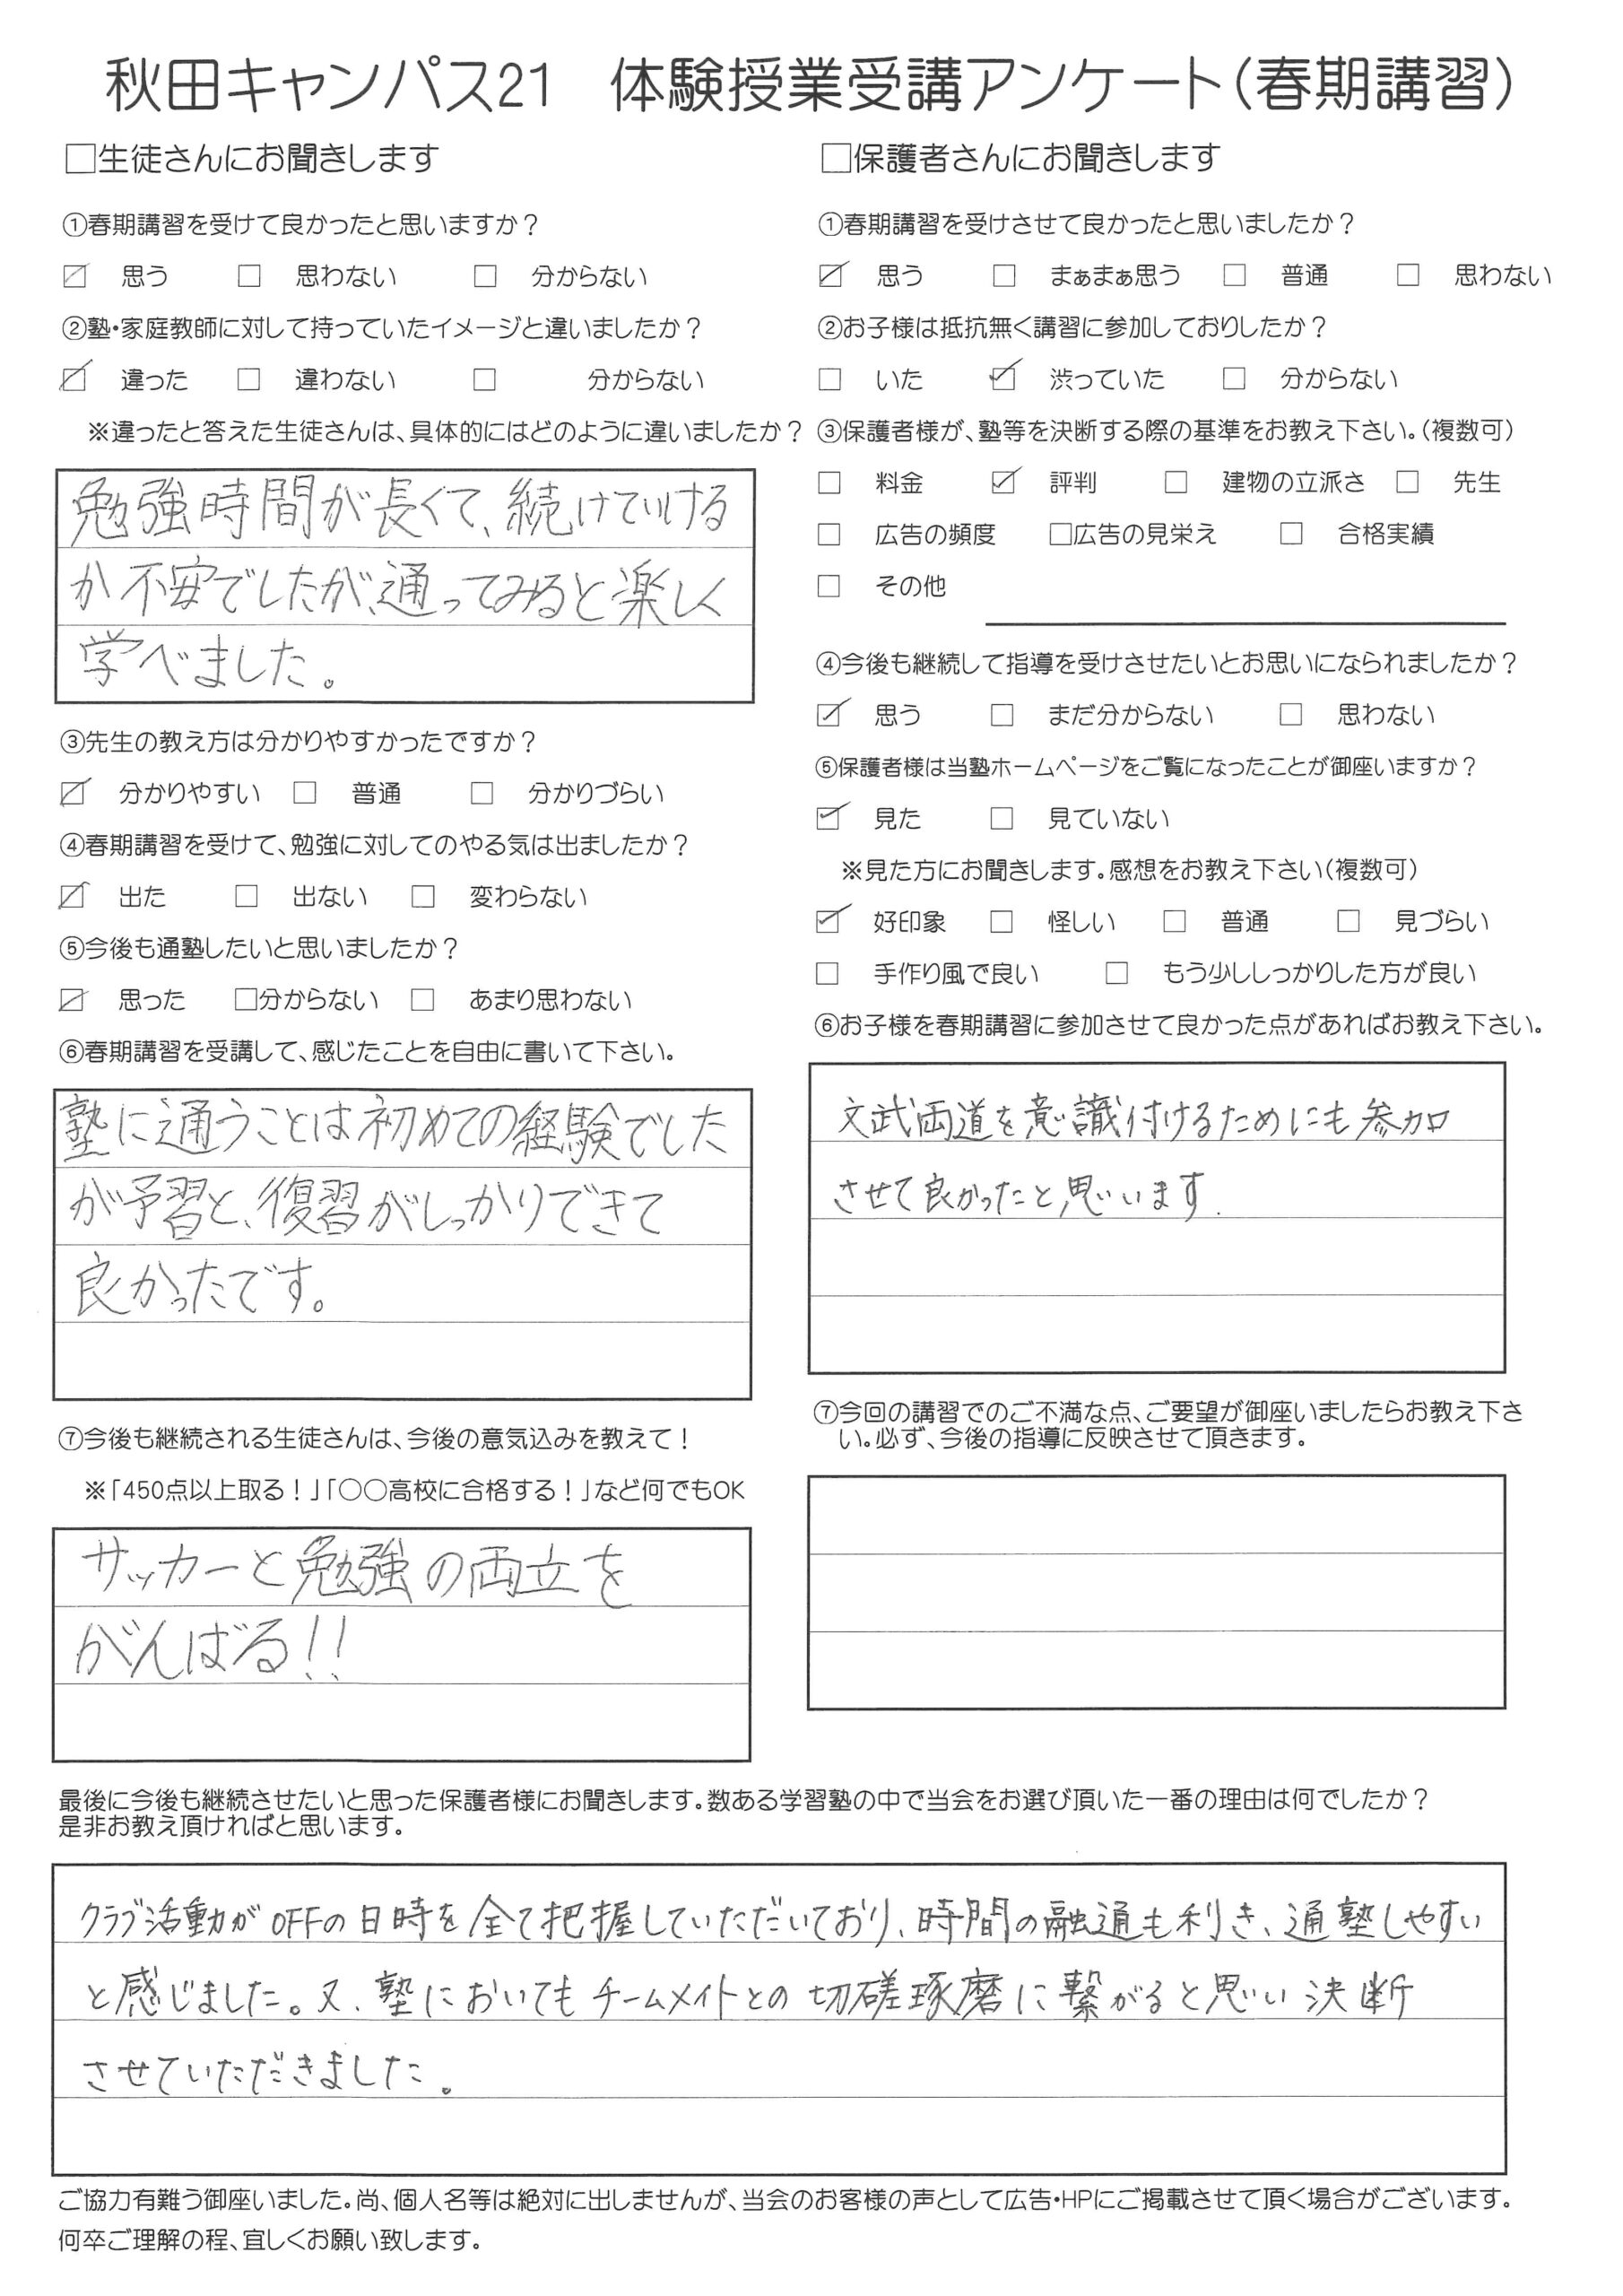 秋田キャンパス21　体験授業受講アンケート（春期講習）
□生徒さんにお聞きします
①春期講習を受けて良かったと思いますか？
☑ 思う □ 思わない □ 分からない
②塾・家庭教師に対して持っていたイメージと違いましたか？
☑ 違った □ 違わない □ 分からない
※違ったと答えた生徒さんは、具体的にはどのように違いましたか？
勉強時間が長くて、続けていける
か不安でしたが、通ってみると楽しく
学べました。
③先生の教え方は分かりやすかったですか？
☑ 分かりやすい □ 普通 □ 分かりづらい
④春期講習を受けて、勉強に対してのやる気は出ましたか？
☑ 出た □ 出ない □ 変わらない
⑤今後も通塾したいと思いましたか？
☑ 思った □分からない □ あまり思わない
⑥春期講習を受講して、感じたことを自由に書いて下さい。
塾に通うことは初めての経験でした
が予習と、復習がしっかりできて
良かったです。
⑦今後も継続される生徒さんは、今後の意気込みを教えて！
※「450点以上取る！」「○○高校に合格する！」など何でもOK
サッカーと勉強の両立を
がんばる!!
□保護者さんにお聞きします
①春期講習を受けさせて良かったと思いましたか？
☑ 思う □ まぁまぁ思う □ 普通 □ 思わない
②お子様は抵抗無く講習に参加しておりしたか？
□ いた ☑ 渋っていた □ 分からない
③保護者様が、塾等を決断する際の基準をお教え下さい。（複数可）
□ 料金 ☑ 評判 □ 建物の立派さ □ 先生
□ 広告の頻度 □広告の見栄え □ 合格実績
□ その他
④今後も継続して指導を受けさせたいとお思いになられましたか？
☑ 思う □ まだ分からない □ 思わない
⑤保護者様は当塾ホームページをご覧になったことが御座いますか？
☑ 見た □ 見ていない
※見た方にお聞きします。感想をお教え下さい（複数可）
☑ 好印象 □ 怪しい □ 普通 □ 見づらい
□ 手作り風で良い □ もう少ししっかりした方が良い
⑥お子様を春期講習に参加させて良かった点があればお教え下さい。
文武両道を意識付けるためにも参加
させて良かったと思います.
⑦今回の講習でのご不満な点、ご要望が御座いましたらお教え下さ
い。必ず、今後の指導に反映させて頂きます。
最後に今後も継続させたいと思った保護者様にお聞きします。数ある学習塾の中で当会をお選び頂いた一番の理由は何でしたか？
是非お教え頂ければと思います。
クラブ活動がOFFの日時を全て把握していただいており、時間の融通も利き、通塾しやすい
と感じました。又、塾においてもチームメイトとの切磋琢磨に繋がると思い決断
させていただきました。
ご協力有難う御座いました。尚、個人名等は絶対に出しませんが、当会のお客様の声として広告・HPにご掲載させて頂く場合がございます。
何卒ご理解の程、宜しくお願い致します。